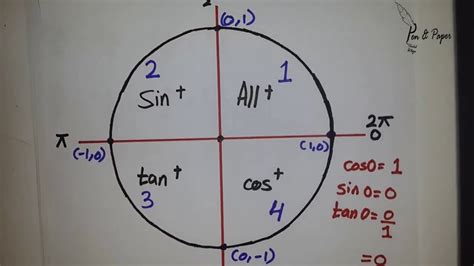 (0,1)
Pen & Paper
2
1
Sin+
All+
2π
π
0
(-1,0)
(1,0)
tan+
cos+
3
4
cos0=1
sin0=0
tan0=0/1
=0
(0,-1)